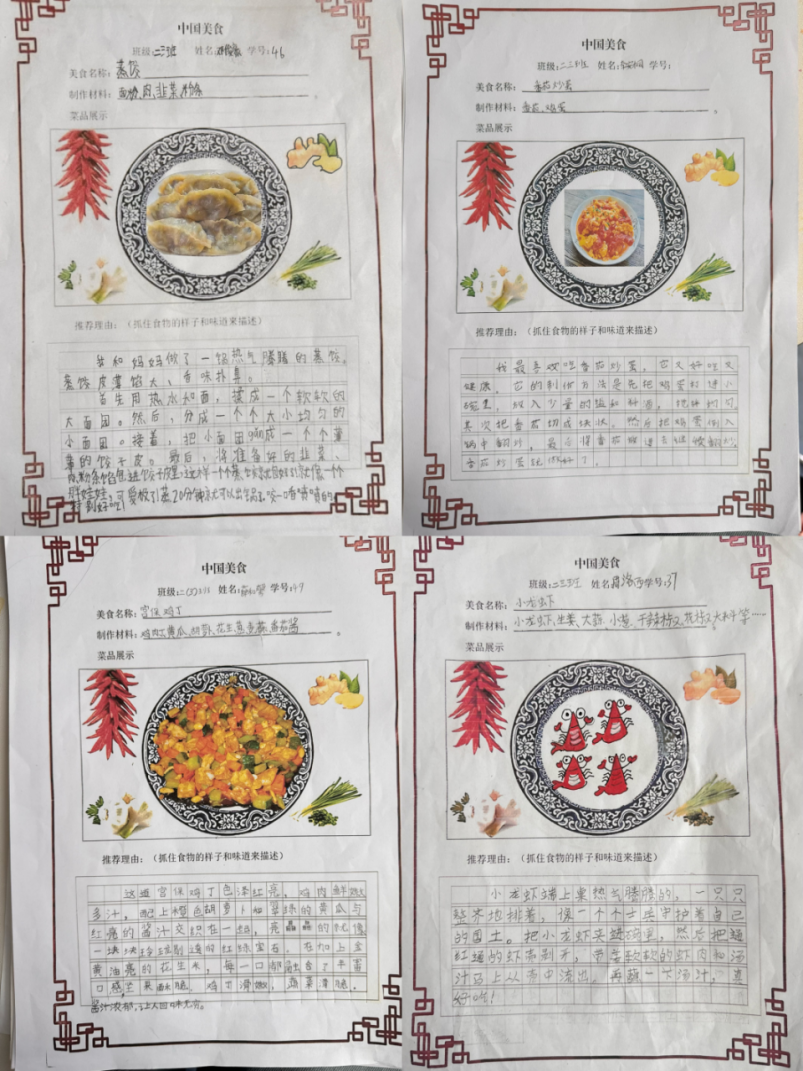 中国美食
班级:二三班 姓名: 学号:46
美食名称:蒸饺
制作材料:面粉、肉、韭菜、粉条。
菜品展示
推荐理由:(抓住食物的样子和味道来描述)
我和妈妈做了一锅热气腾腾的蒸饺。
蒸饺皮薄馅大、香味扑鼻。
首先用热水和面,揉成一个软软的
大面团。然后,分成一个个大小均匀的
小面团。接着,把小面团 成一个个薄
薄的饺子皮。最后,将准备好的韭菜、
肉、粉条馅包进饺子皮里。这样一个个蒸饺就做好了就像一个个
胖娃娃,可爱极了蒸20分钟就可以出锅了。咬一口香喷喷的
特别好吃!
中国美食
班级:二三班 姓名: 学号:
美食名称:番茄炒蛋
制作材料:番茄、鸡蛋。
菜品展示
推荐理由:(抓住食物的样子和味道来描述)
我最喜欢吃番茄炒蛋,它又好吃又
健康。它的制作方法是先把鸡蛋打进小
碗里,放入少量的盐和料酒,搅拌均匀。
其次把番茄切成块状,然后把鸡蛋倒入
锅中翻炒,最后将番茄 进去继续翻炒,
番茄炒蛋就做好了。
中国美食
班级:二(3)班 姓名: 学号:49
美食名称:宫保鸡丁
制作材料:鸡肉、黄瓜、胡萝卜、花生、 番茄酱。
菜品展示
推荐理由:(抓住食物的样子和味道来描述)
这道宫保鸡丁色泽红亮,鸡肉鲜嫩
多汁,配上橙色胡萝卜和翠绿的黄瓜与
红亮的酱汁交织在一起,亮晶晶的就像
一块块玲珑剔透的红绿宝石。在加上金
黄油亮的花生米,每一口都融合了丰富
口感,坚果酥脆,鸡丁滑嫩,蔬菜清脆,
酱汁浓郁,让人回味无穷。
中国美食
班级:二三班 姓名: 学号:37
美食名称:小龙虾
制作材料:小龙虾、生姜、大蒜、小葱、干辣椒、花椒、大料等……。
菜品展示
推荐理由:(抓住食物的样子和味道来描述)
小龙虾端上桌热气腾腾的,一只只
整齐地排着,像一个个士兵守护着自己
的国土。把小龙虾夹进碗里,然后把通
红通的虾壳剥开,带着软软的虾肉和汤
汁马上从壳中流出,再蘸一下汤汁,真
好吃!